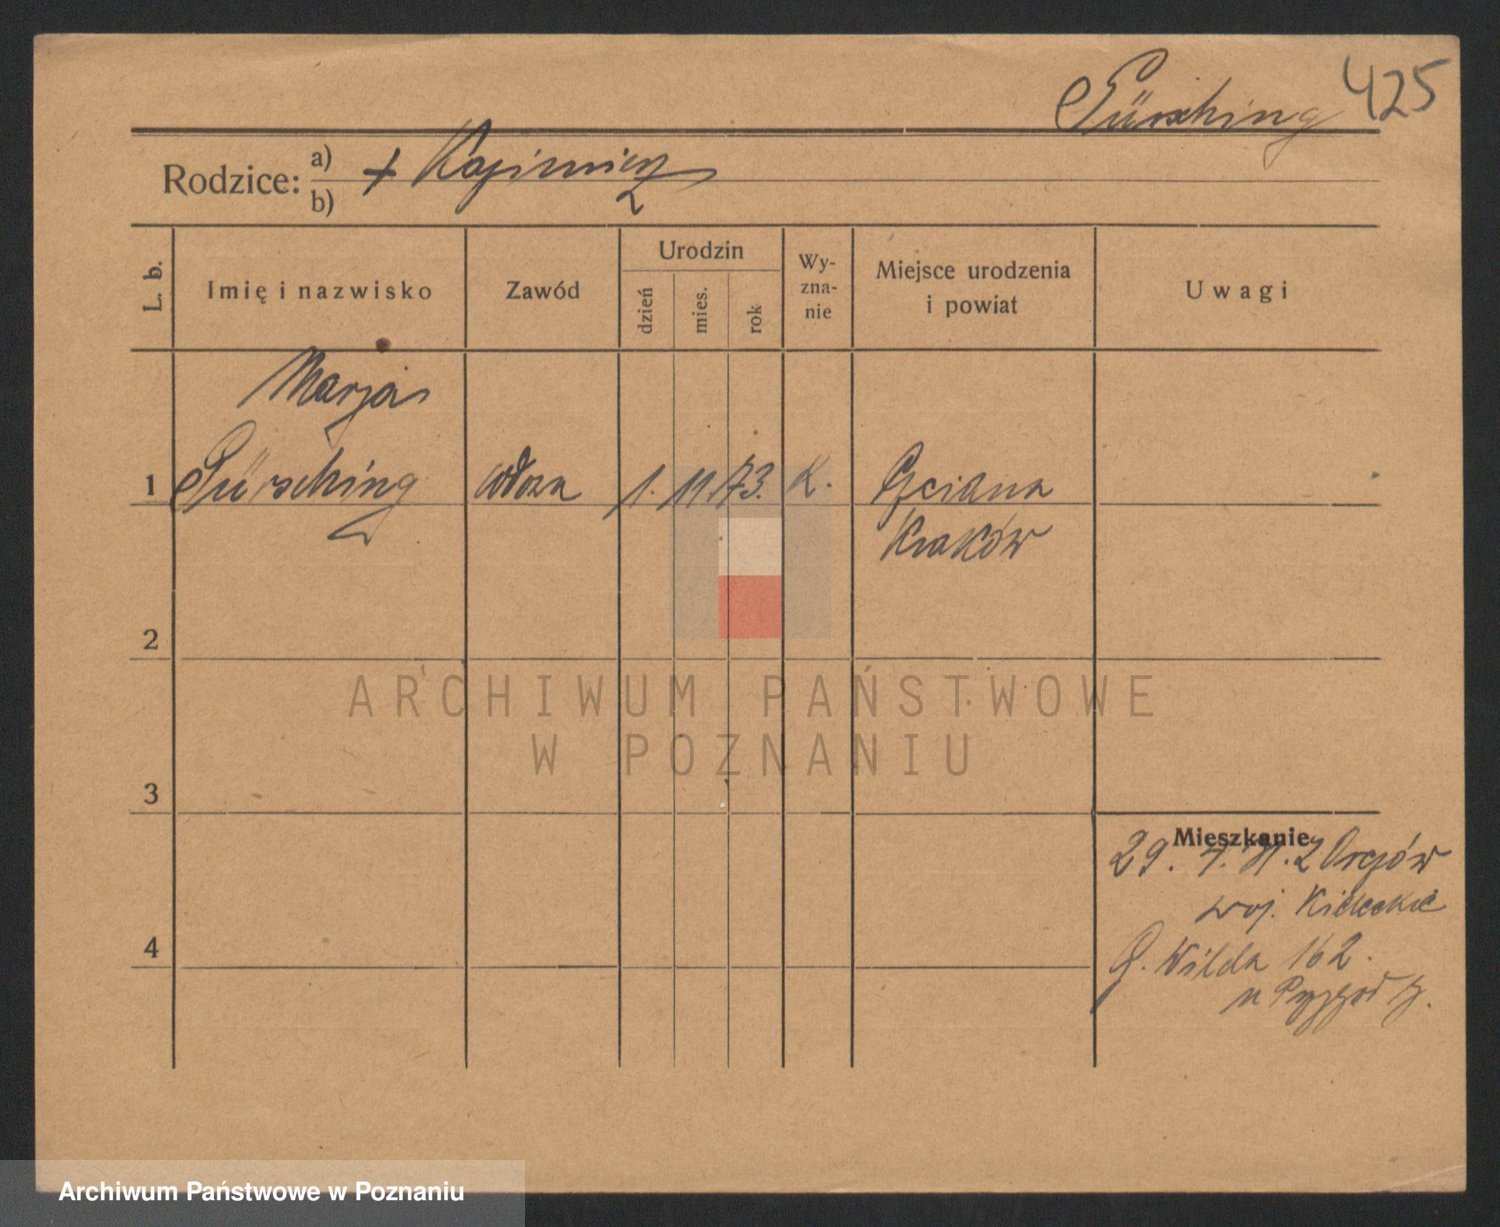 425
Pürsching
Rodzice: a) + Kazimierz
b)
L. b.
Imię i nazwisko
Zawód
Urodzin
dzień
mies.
rok
Wy-
zna-
nie
Miejsce urodzenia
i powiat
Uwagi
Marja
1 Pürsching wdowa 1. 11. 73. k.
Kraków
2
3
4
Mieszkanie
29. 7. 31. z
woj. Kieleckie
G. Wilda 162.
ARCHIWUM PAŃSTWOWE
W POZNANIU
Archiwum Państwowe w Poznaniu